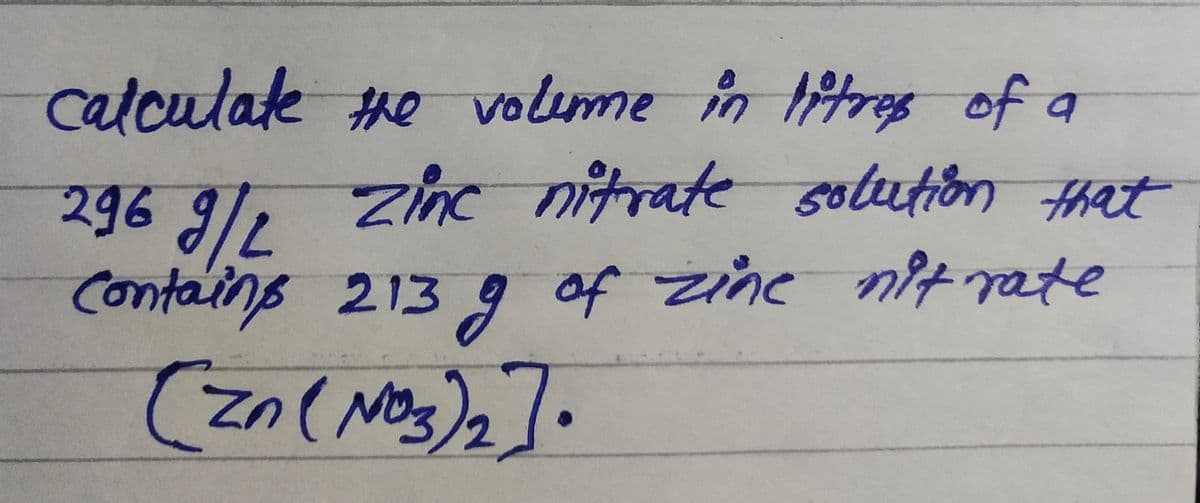 calculate the volume in litres of a
296 g/L zinc nitrate solution that
contains 213 g of zinc nitrate
[Zn(NO₃)₂].